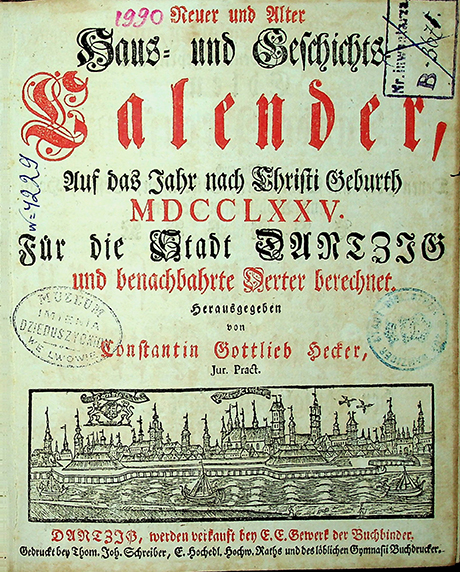 1990
Neuer und Alter
Haus- und Geschichts
Calender,
Auf das Jahr nach Christi Geburth
MDCCLXXV.
Für die Stadt DANTZIG
und benachbahrte Oerter berechnet.
Herausgegeben
von
Constantin Gottlieb Hecker,
Jur. Pract.
DANTZIG, werden verkauft bey E. E. Gewerk der Buchbinder.
Gedruckt bey Thom. Joh. Schreiber, E. Hochedl. Hochw. Raths und des löblichen Gymnasii Buchdrucker.
Nr. inwentarza
B.
W=4229
MUZEUM
IMIENIA
DZIEDUSZYCKICH
WE LWOWIE